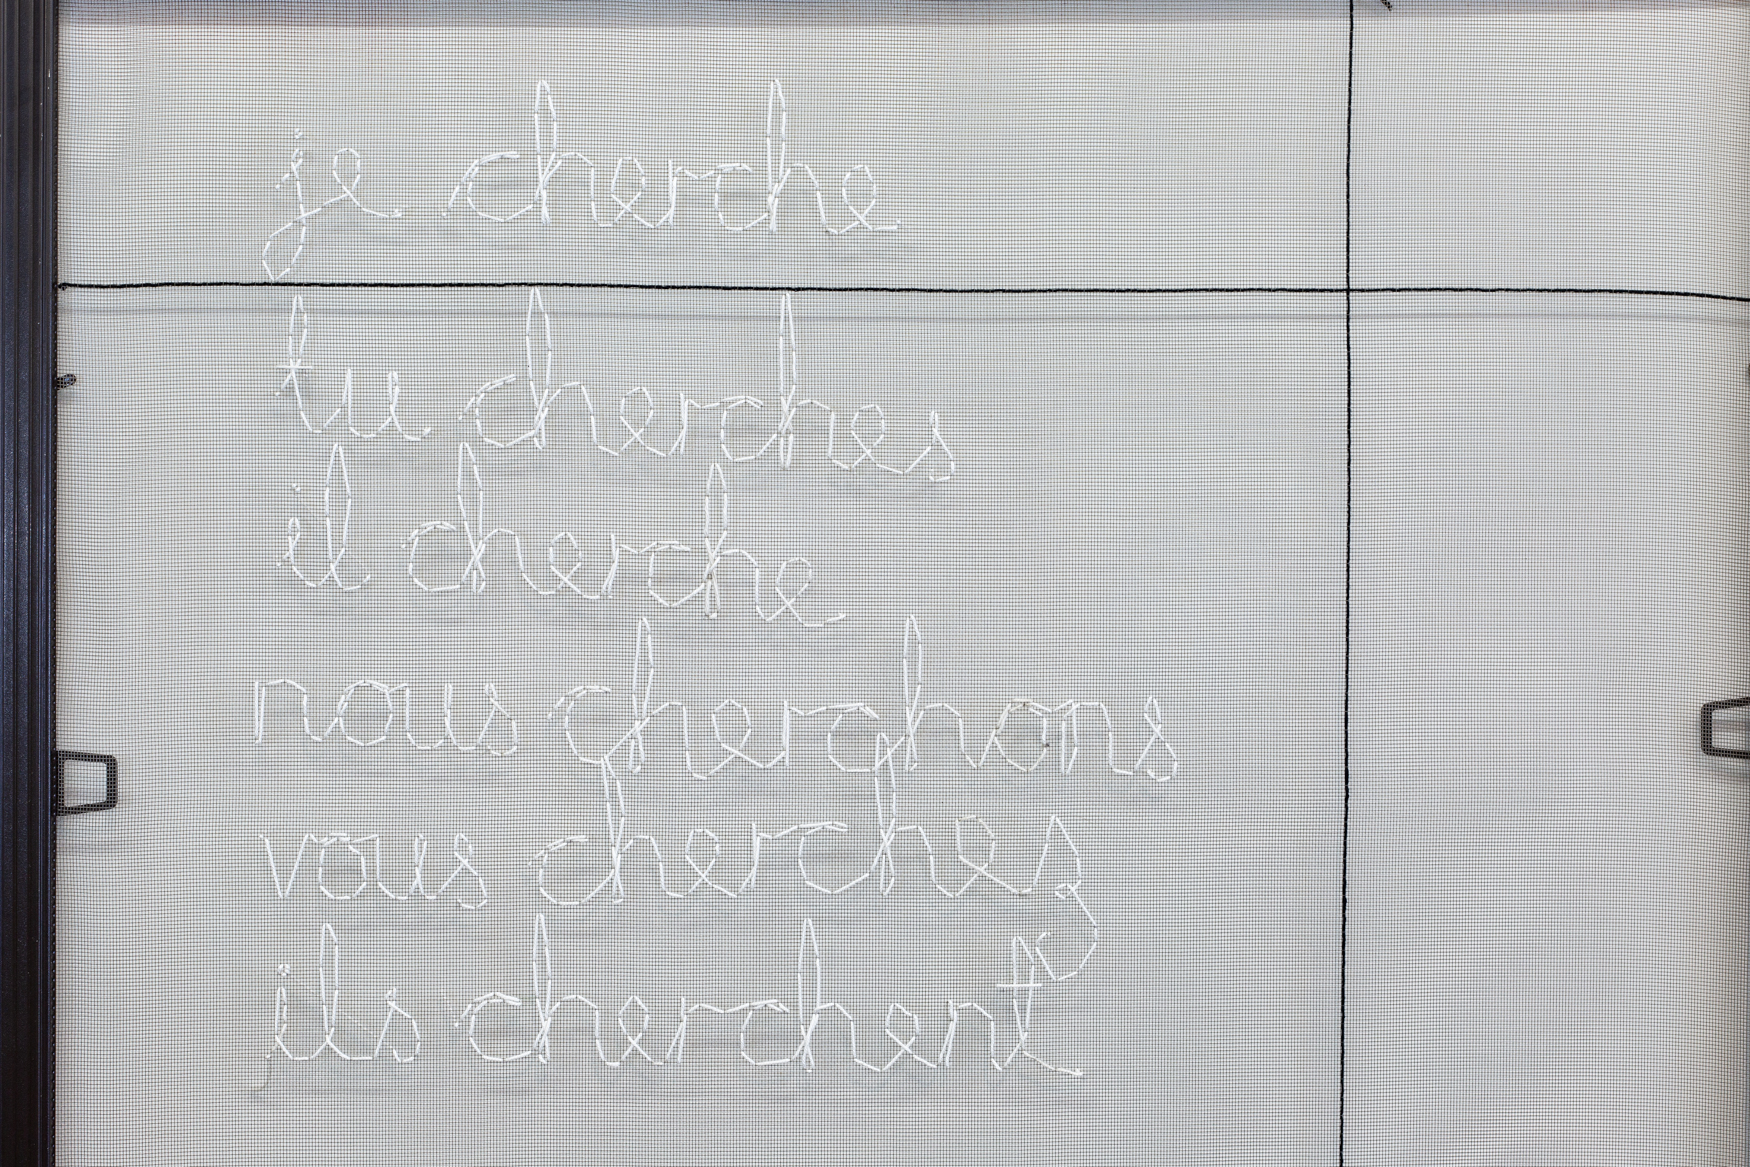 je cherche
tu cherches
il cherche
nous cherchons
vous cherchez
ils cherchent